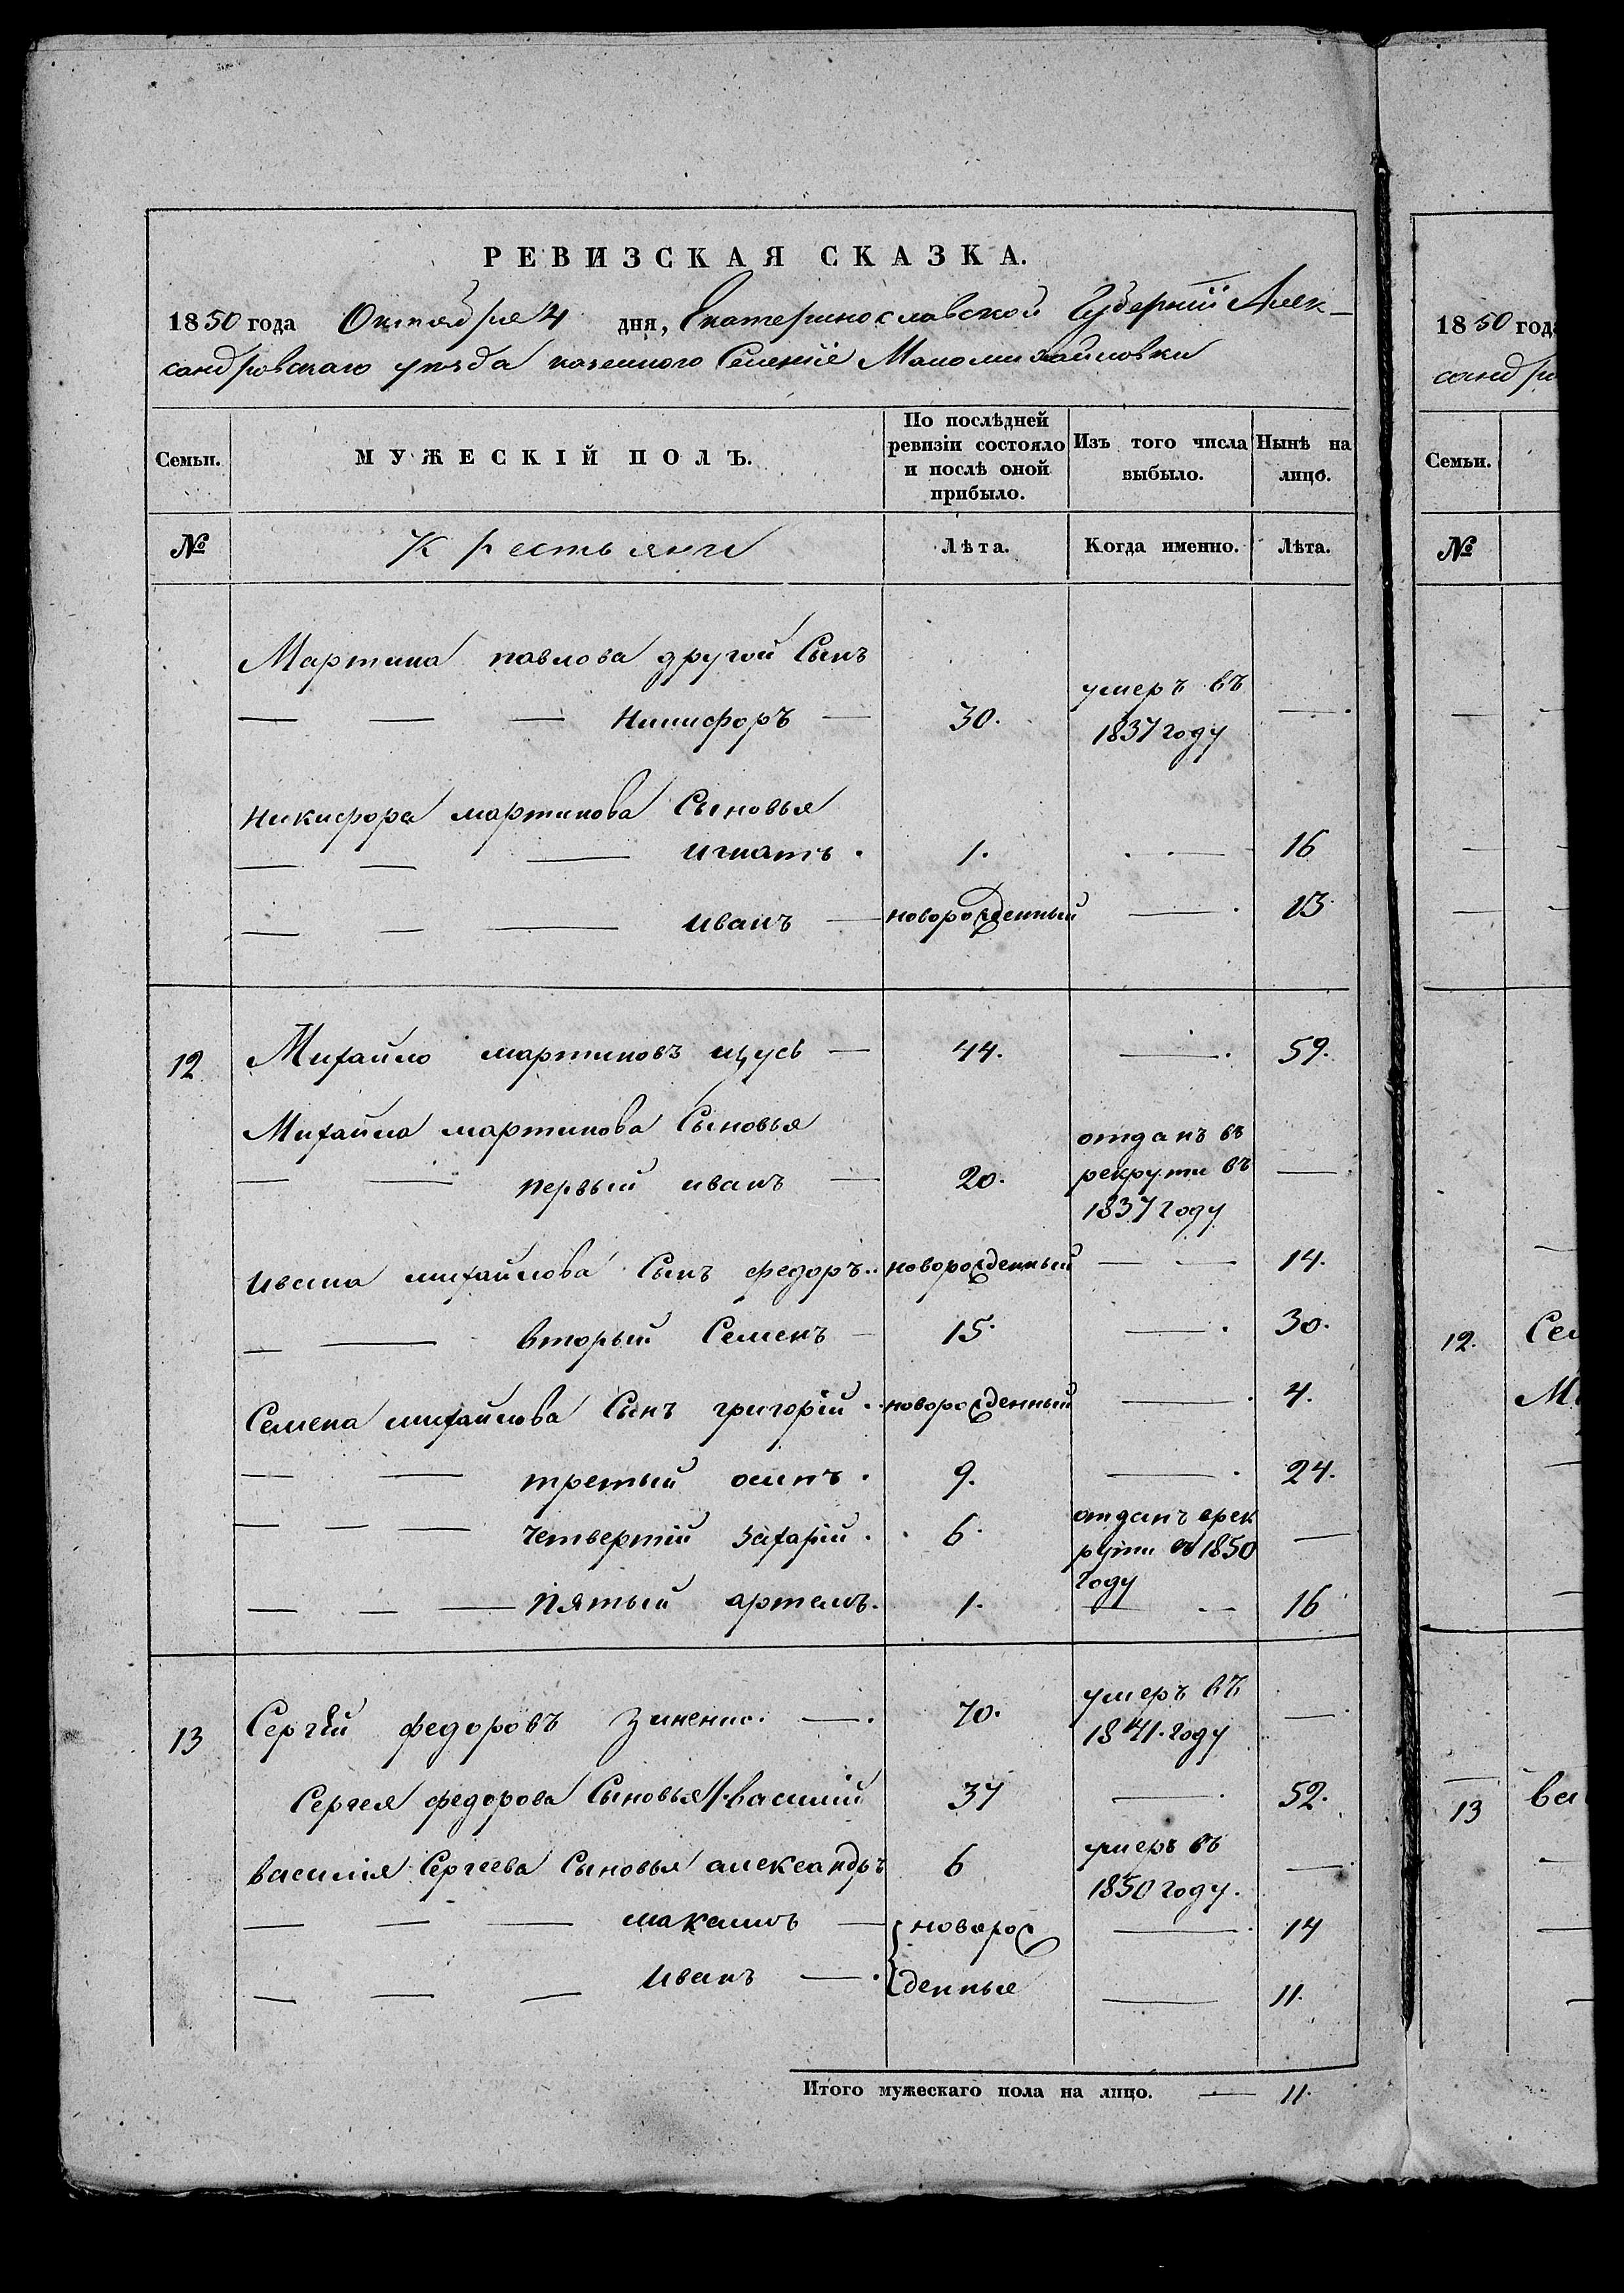 РЕВИЗСКАЯ СКАЗКА.
1850 года Октября 4 дня, Екатеринославской Губернiи Алек-
сандровскаго уѣзда казенного Селенiе Маломихайловки
Семьи. МУЖЕСКIЙ ПОЛЪ. По послѣдней ревизiи состояло и послѣ оной прибыло. Изъ того числа выбыло. Нынѣ на лицо.
№ Крестьяни Лѣта. Когда именно. Лѣта.
Мартина павлова другой Сынъ
— — — Никифоръ — 30. умеръ въ 1837 году —
никифора мартинова Сыновья
— — — игнатъ. 1. — 16
— — — иванъ — новорожденный — 13
12 Михайло мартиновъ щусь — 44. — 59.
Михайла мартинова Сыновья
— — первый иванъ — 20. отданъ въ рекрути въ 1837 году —
ивана михайлова Сынъ федоръ.. новорожденный — — 14.
— — вторый Семенъ — 15. — 30.
Семена михайлова Сынъ григорiй.. новорожденный — 4.
— — третый осипъ. 9. — 24.
— — — четвертiй захарiй. 6. отданъ врек рути въ 1850 году —
— — — пятый артемъ. 1. — — 16
13 Сергѣй федоровъ Зиненко. —. 70. умеръ въ 1841. году —
Сергея федорова Сыновья/1. василiй 37 — 52.
василiя Сергеева Сыновья александръ 6 умеръ въ 1850 году. —
— — — максимъ — { новорож — 14
— — — иванъ —. денные — 11.
Итого мужескаго пола на лицо. — 11.
1850 года
сандро
Семьи.
№
12. Сем
Ми
13 Ва